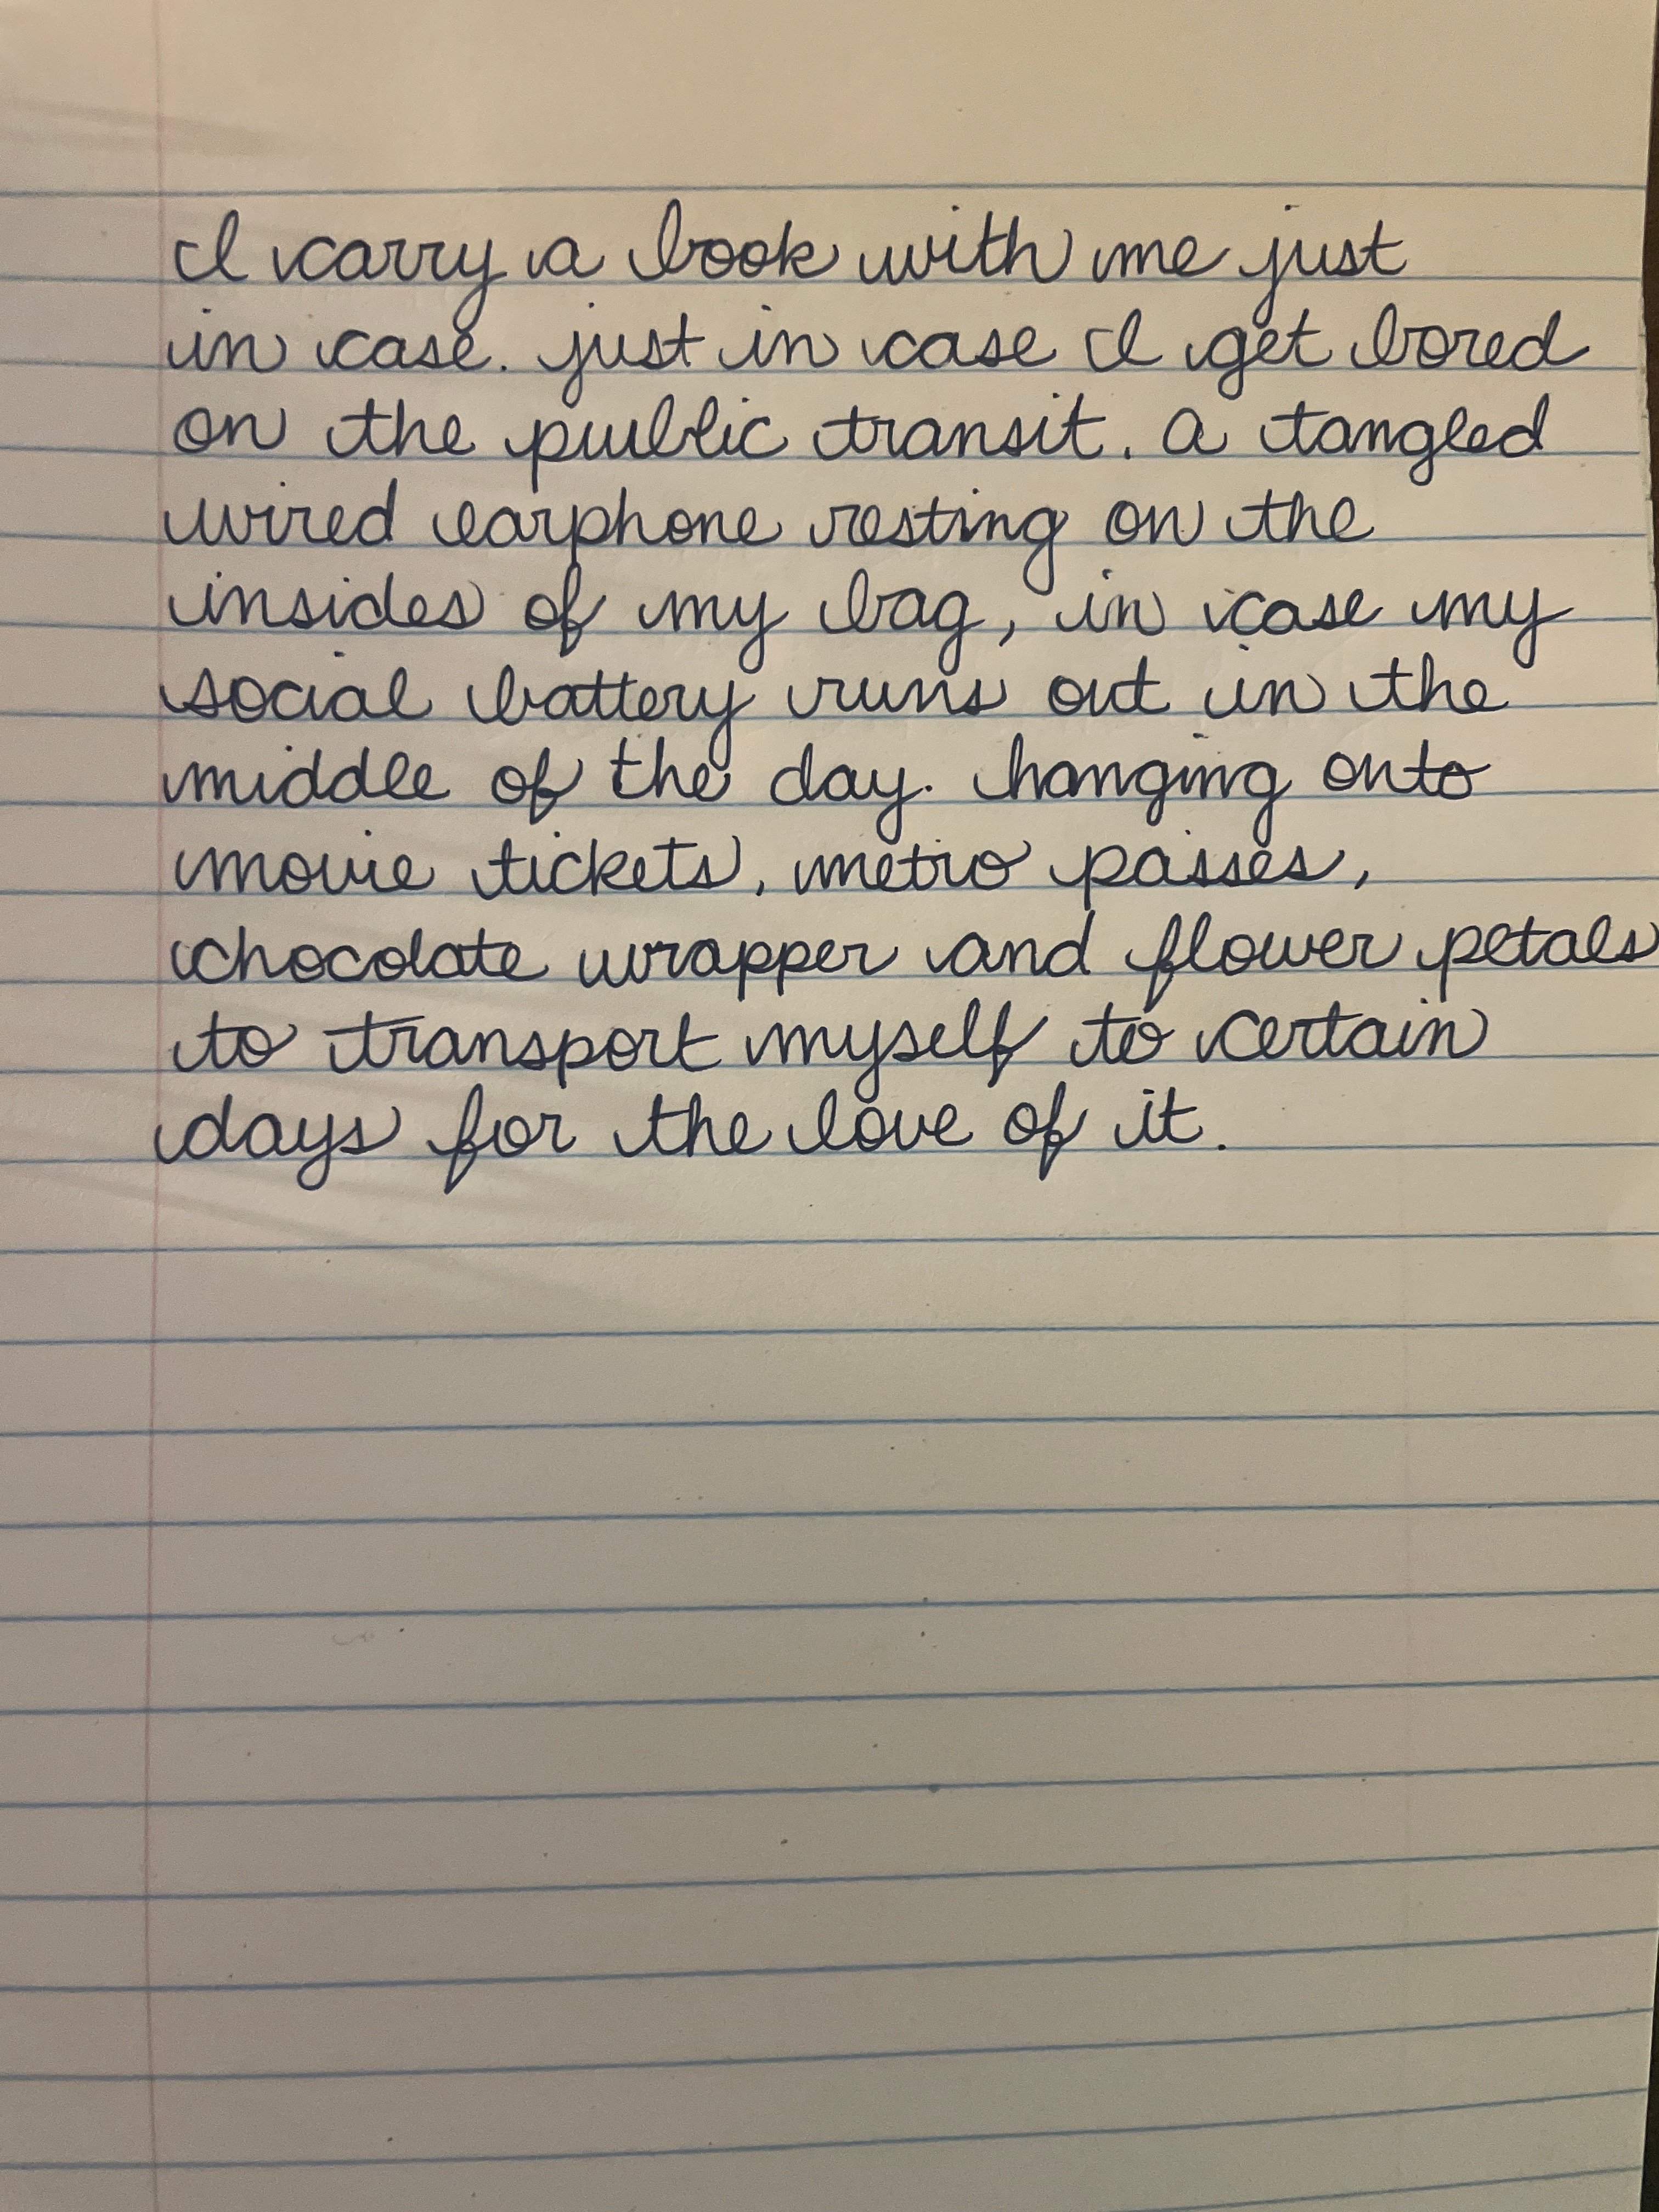 I carry a book with me just
in case. just in case I get bored
on the public transit. A tangled
wired earphone resting on the
insides of my bag, in case my
social battery runs out in the
middle of the day. hanging onto
movie tickets, metro passes,
chocolate wrapper and flower petals
to transport myself to certain
days for the love of it.